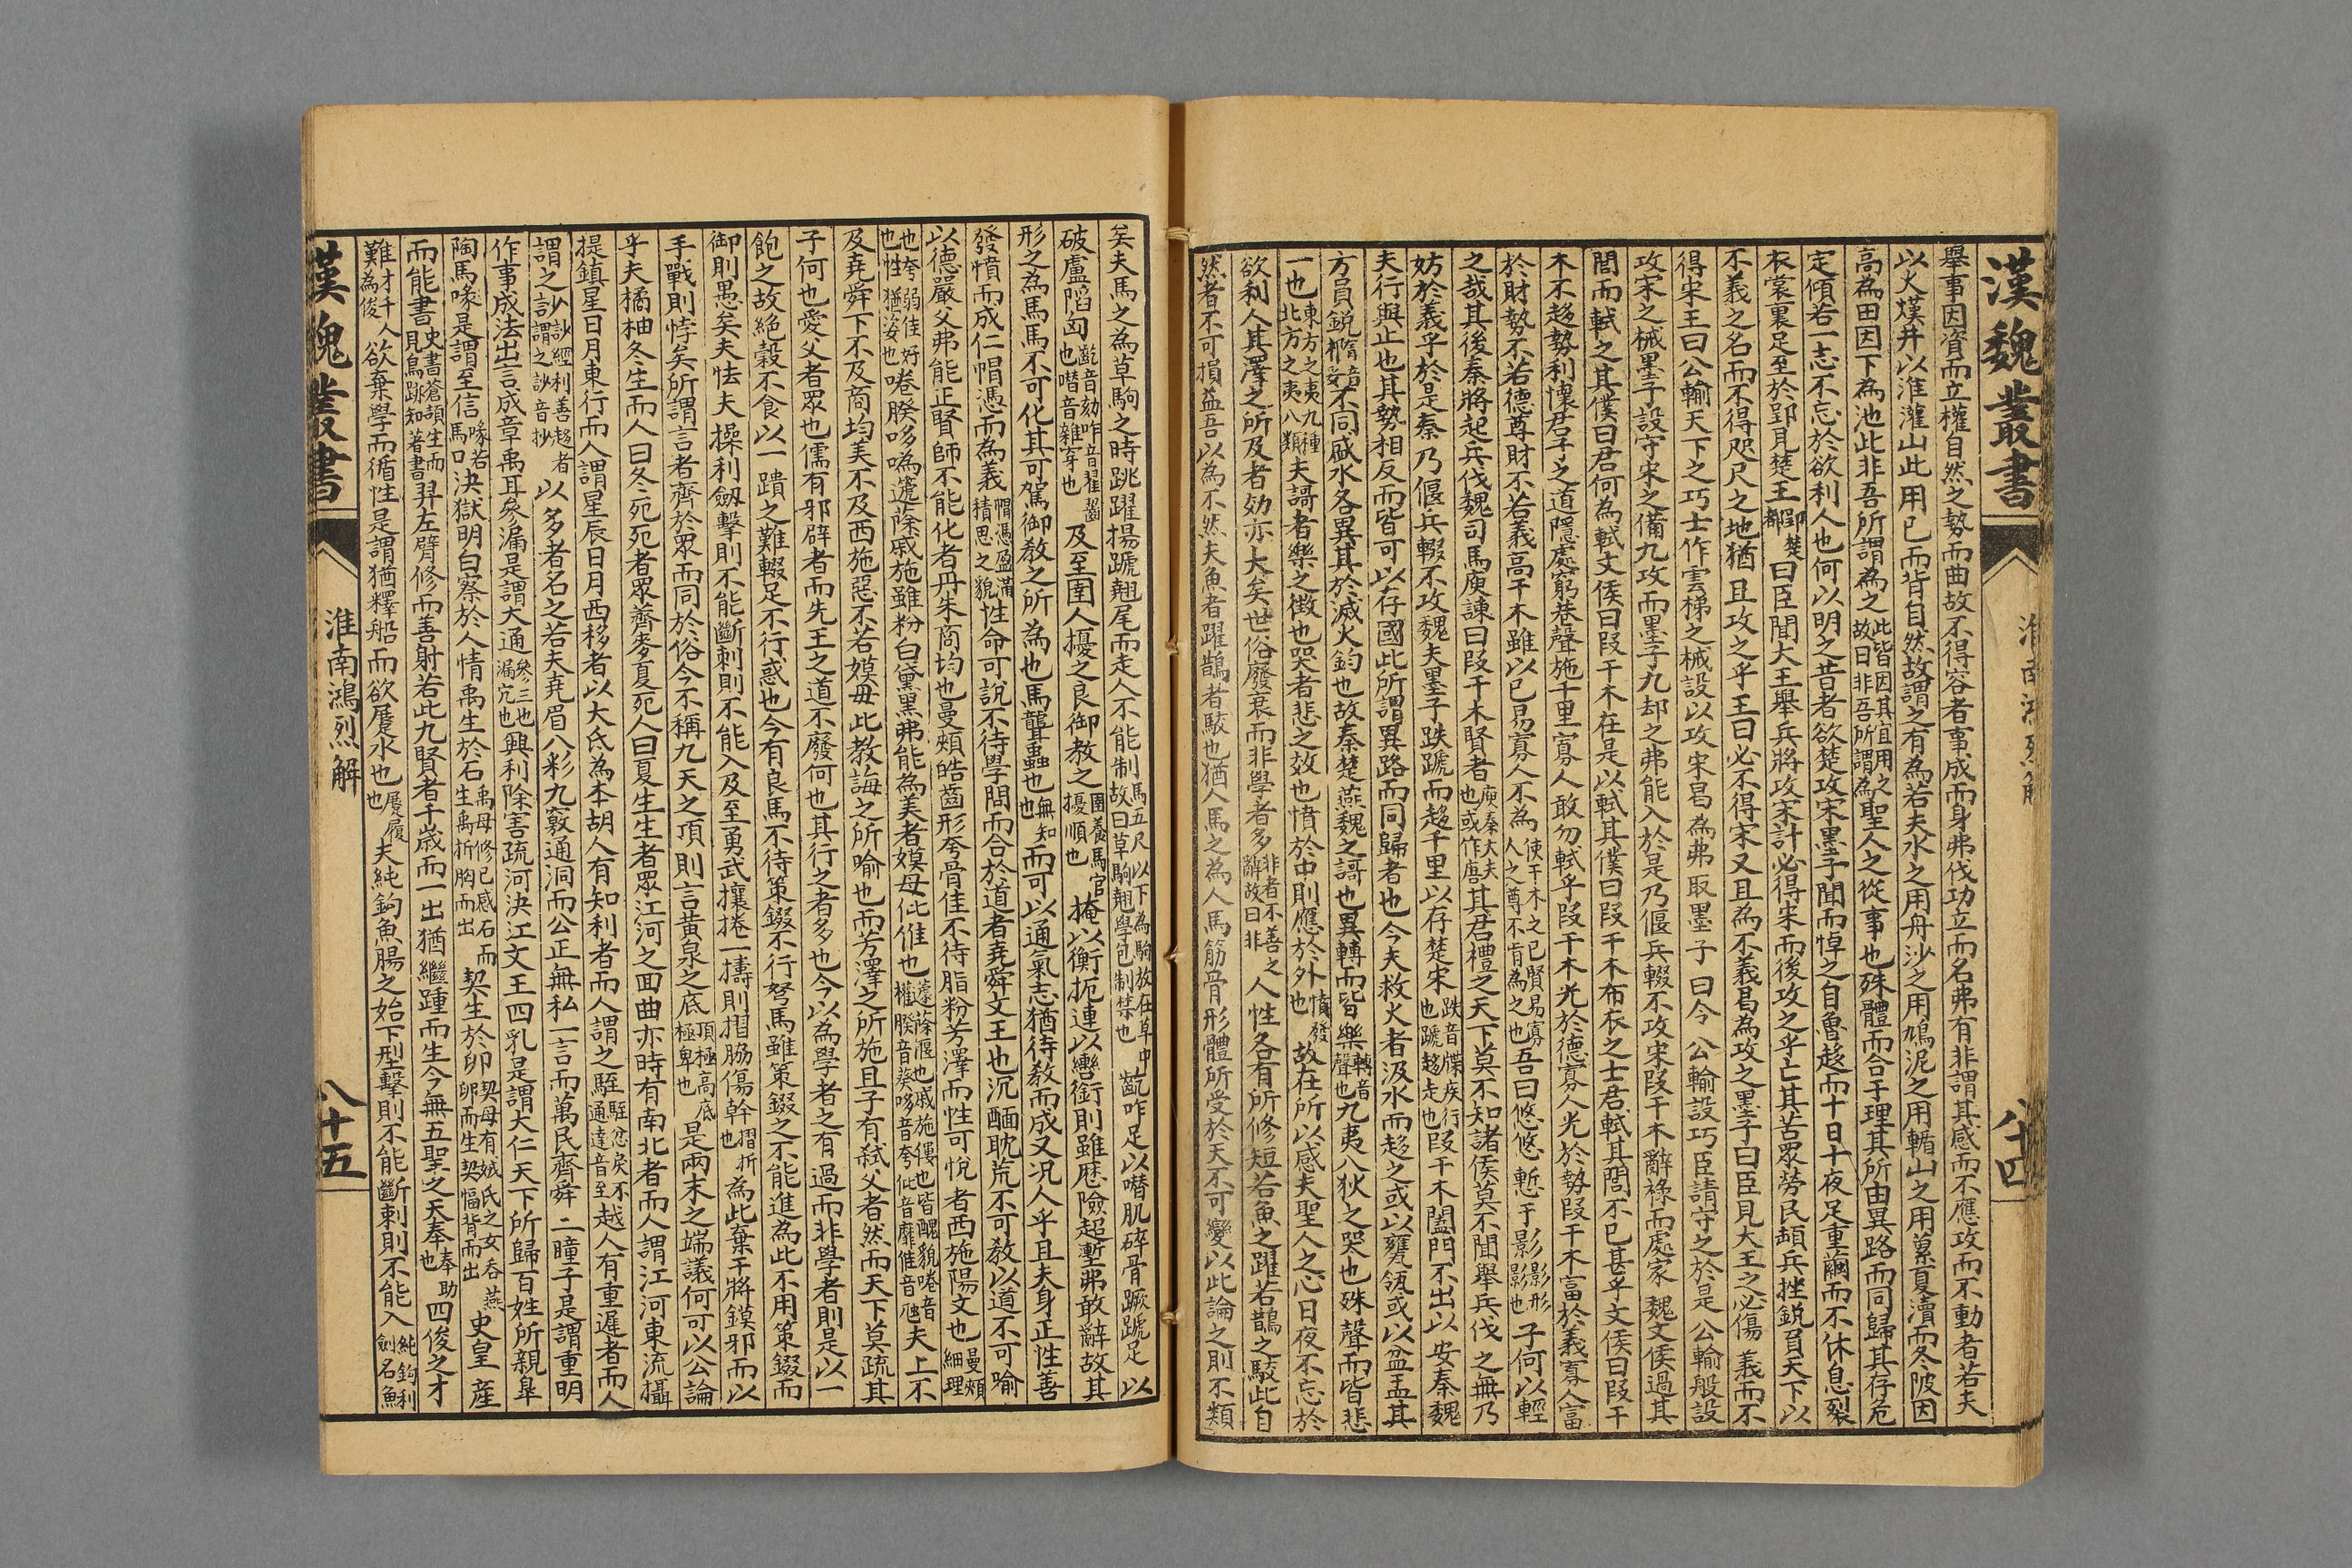 漢魏叢書
淮南鴻烈解
八十四
舉事因資而立權自然之勢而曲故不得容者事成而身弗伐功立而名弗有非謂其感而不應攻而不動者若夫
以火熯井以淮灌山此用已而背自然故謂之有為若夫水之用舟沙之用鳩泥之用輴山之用蔂夏瀆而冬陂因
高為田因下為池此非吾所謂為之此皆因其宜用之故曰非吾所謂為聖人之從事也殊體而合于理其所由異路而同歸其存危
定傾若一志不忘於欲利人也何以明之昔者欲楚攻宋墨子聞而悼之自魯趍而十日十夜足重繭而不休息裂
衣裳裹足至於郢見楚王郢楚都曰臣聞大王舉兵將攻宋計必得宋而後攻之乎亡其苦眾勞民頓兵挫銳負天下以
不義之名而不得咫尺之地猶且攻之乎王曰必不得宋又且為不義曷為攻之墨子曰臣見大王之必傷義而不
得宋王曰公輸天下之巧士作雲梯之械設以攻宋曷為弗取墨子曰令公輸設攻臣請守之於是公輸般設
攻宋之械墨子設守宋之備九攻而墨子九却之弗能入於是乃偃兵輟不攻宋段干木辭祿而處家魏文侯過其
閭而軾之其僕曰君何為軾文侯曰段干木在是以軾其僕曰段干木布衣之士君軾其閭不已甚乎文侯曰段干
木不趍勢利懷君子之道隱處窮巷聲施千里寡人敢勿軾乎段干木光於德寡人光於勢段干木富於義寡人富
於財勢不若德尊財不若義高干木雖以己易寡人不為使干木之己賢易寡人之尊不肯為之也吾曰悠悠慙于影影形影也子何以輕
之哉其後秦將起兵伐魏司馬庾諫曰段干木賢者庾秦大夫也或作唐其君禮之天下莫不知諸侯莫不聞舉兵伐之無乃
妨於義乎於是秦乃偃兵輟不攻魏夫墨子跌蹏而趍千里以存楚宋跌音牒疾行也蹏趍走也段干木闔門不出以安秦魏
夫行與止也其勢相反而皆可以存國此所謂異路而同歸者也今夫救火者汲水而趍之或以甕瓴或以盆盂其
方員銳橢音妥不同盛水各異其於滅火鈞也故秦楚燕魏之謌也異轉而皆樂轉音聲也九夷八狄之哭也殊聲而皆悲
一也東方之夷九種北方之夷八類夫謌者樂之徵也哭者悲之效也憤於中則應於外憤發也故在所以感夫聖人之心日夜不忘於
欲利人其澤之所及者効亦大矣世俗廢衰而非學者多非者不善之辭故曰非人性各有所修短若魚之躍若鵲之駁此自
然者不可損益吾以為不然夫魚者躍鵲者駁也猶人馬之為人馬筋骨形體所受於天不可變以此論之則不類
矣夫馬之為草駒之時跳躍揚蹏翹尾而走人不能制馬五尺以下為駒放在草中故曰草駒翹學也制禁也齕咋足以噆肌碎骨蹶蹏足以
破盧陷匈齕音劾咋音罹齧也噆音雜穿也及至圉人擾之良御教之圉養馬官擾順也掩以衡扼連以轡銜則雖歷險超塹弗敢辭故其
形之為馬馬不可化其可駕御教之所為也馬聾蟲也無知也而可以通氣志猶待教而成又況人乎且夫身正性善
發憤而成仁帽憑而為義帽憑盈滿積思之貌性命可說不待學問而合於道者堯舜文王也沉酾耽荒不可教以道不可喻
以德嚴父弗能正賢師不能化者丹朱商均也曼頰皓齒形夸骨佳不待脂粉芳澤而性可悅者西施陽文也曼頰細理
也夸弱佳好也性猶姿也啳脥哆噅籧蒢戚施雖粉白黛黑弗能為美者嫫母仳倠也籧蒢偃也戚施僂也皆醜貌啳音權脥音葵哆音夸仳音靡倠音夫上不
及堯舜下不及商均美不及西施惡不若嫫母此教誨之所喻也而芳澤之所施且子有弒父者然而天下莫疏其
子何也愛父者眾也儒有邪辟者而先王之道不廢何也其行之者多也今以為學者之有過而非學者則是以一
飽之故絕穀不食以一蹪之難輟足不行惑也今有良馬不待策錣不行駑馬雖策錣之不能進為此不用策錣而
御則愚矣夫怯夫操利劔擊則不能斷刺則不能入及至勇武攘捲一擣則摺脇傷幹摺折也為此棄干將鏌邪而以
手戰則悖矣所謂言者齊於眾而同於俗今不稱九天之頂則言黃泉之底頂極高底極卑也是兩末之端議何可以公論
乎夫橘柚冬生而人曰冬死死者眾薺麥夏死人曰夏生生者眾江河之回曲亦時有南北者而人謂江河東流攝
提鎮星日月東行而人謂星辰日月西移者以大氏為本胡人有知利者而人謂之駤駤忿戾不通達音至越人有重遲者而人
謂之訬訬經利善趍者謂之訬音抄以多者名之若夫堯眉八彩九竅通洞而公正無私一言而萬民齊舜二瞳子是謂重明
作事成法出言成章禹耳參漏是謂大通參三也漏穴也興利除害疏河決江文王四乳是謂大仁天下所歸百姓所親皐
陶馬喙是謂至信喙若馬口決獄明白察於人情禹生於石禹母修已感石而生禹折胸而出契生於卵契母有娀氏之女吞燕卵而生契愊背而出史皇產
而能書史書蒼頡生而見鳥跡知著書羿左臂修而善射若此九賢者千歲而一出猶繼踵而生今無五聖之天奉奉助也四俊之才
難才千人為俊欲棄學而循性是謂猶釋船而欲蹍水也蹍履也夫純鉤魚腸之始下型擊則不能斷刺則不能入純鉤利劍名魚
漢魏叢書
淮南鴻烈解
八十五